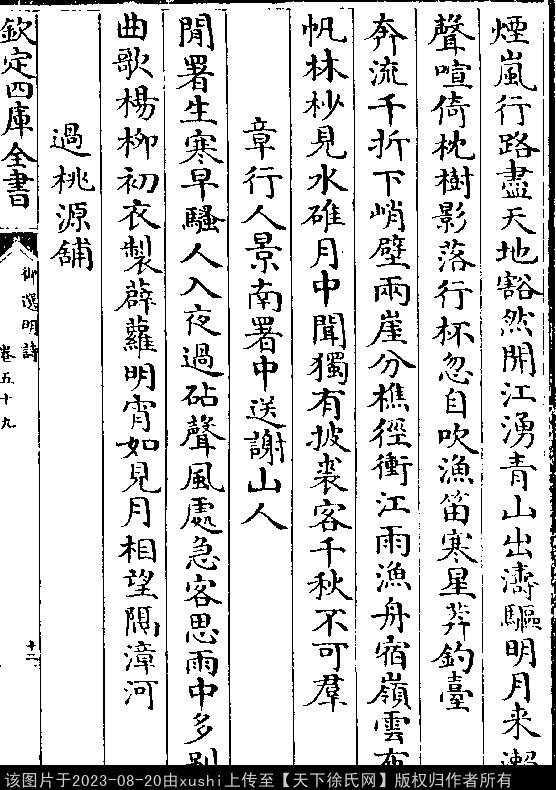 煙嵐行路盡天地豁然開江湧青山出濤驅明月来瀨
聲喧倚枕樹影落行杯忽自吹漁笛寒星莽釣臺
奔流千折下峭壁兩崖分樵徑衝江雨漁舟宿嶺雲布
帆林杪見水碓月中聞獨有披裘客千秋不可羣
章行人景南署中送謝山人
閒署生寒早騷人入夜過砧聲風處急客思雨中多别
曲歌楊柳初衣製薜蘿明宵如見月相望隔漳河
過桃源舖
欽定四庫全書
御選明詩
卷五十九
十二
该图片于2023-08-20由xushi上传至【天下徐氏网】版权归作者所有